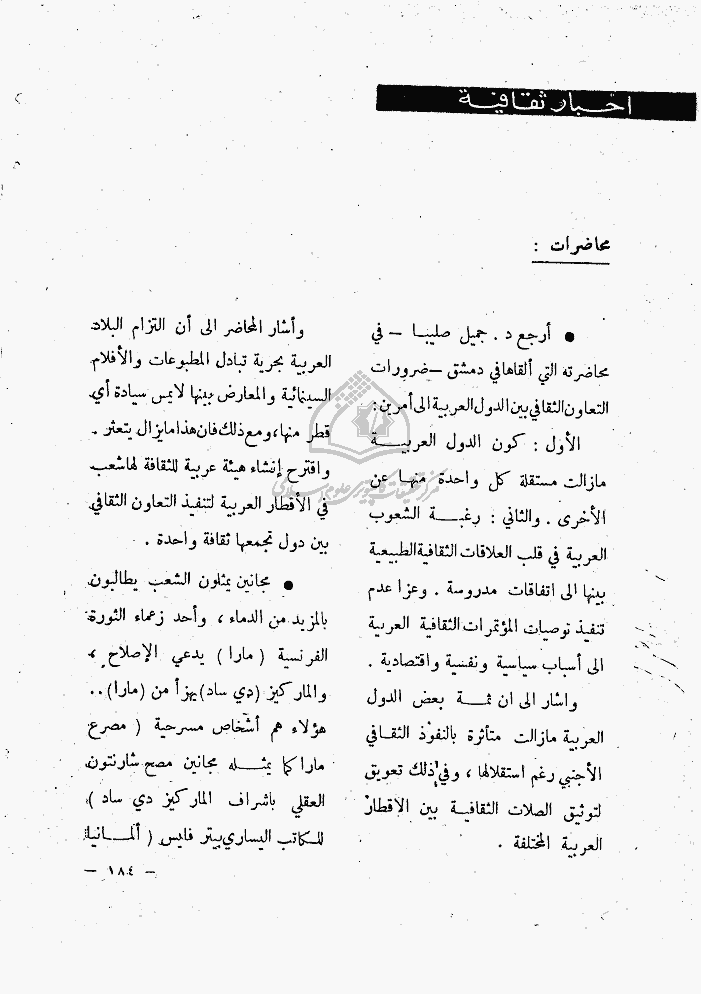 اخبار ثقافية
محاضرات :
● أرجع د . جميل صليبا – في
محاضرته التي ألقاها في دمشق – ضرورات
التعاون الثقافي بين الدول العربية الى أمرين :
الأول : كون الدول العربية
مازالت مستقلة كل واحدة منها عن
الأخرى . والثاني : رغبة الشعوب
العربية في قلب العلاقات الثقافية الطبيعية
بينها الى اتفاقات مدروسة . وعزا عدم
تنفيذ توصيات المؤتمرات الثقافية العربية
الى أسباب سياسية ونفسية واقتصادية .
واشار الى ان ثمة بعض الدول
العربية مازالت متأثرة بالنفوذ الثقافي
الأجنبي رغم استقلالها ، وفي ذلك تعويق
لتوثيق الصلات الثقافية بين الأقطار
العربية المختلفة .
وأشار المحاضر الى أن التزام البلاد
العربية بحرية تبادل المطبوعات والأفلام
السينمائية والمعارض بينها لايمس سيادة أي
قطر منها ، ومع ذلك فان هذا مايزال يتعثر .
واقترح إنشاء هيئة عربية للثقافة لها شعب
في الأقطار العربية لتنفيذ التعاون الثقافي
بين دول تجمعها ثقافة واحدة .
● مجانين يمثلون الشعب يطالبون
بالمزيد من الدماء ، وأحد زعماء الثورة
الفرنسية ( مارا ) يدعي الإصلاح ،
والماركيز (دي ساد) يهزأ من (مارا) . .
هؤلاء هم أشخاص مسرحية ( مصرع
مارا كما يمثله مجانين مصح شارنتون
العقلي باشراف الماركيز دي ساد )
للكاتب اليساري بيتر فايس ( ألمانيا
– ١٨٤ –